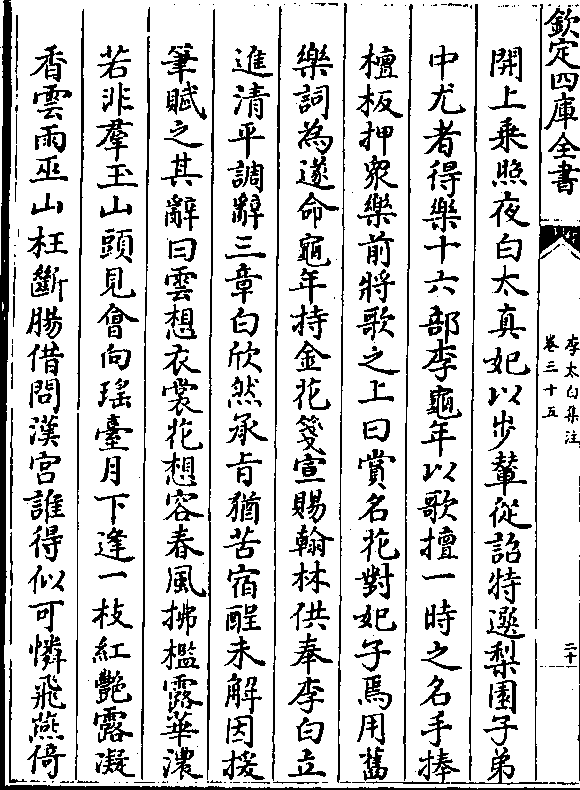 欽定四庫全書
李太白集注
卷三十五
二十
開上乗照夜白太真妃以步輦從詔特選梨園子弟
中尤者得樂十六部李龜年以歌擅一時之名手捧
檀板押衆樂前將歌之上曰賞名花對妃子焉用舊
樂詞為遂命龜年持金花箋宣賜翰林供奉李白立
進清平調辭三章白欣然承㫖猶苦宿酲未解因援
筆賦之其辭曰雲想衣裳花想容春風拂檻露華濃
若非羣玉山頭見會向瑶臺月下逢一枝紅艷露凝
香雲雨巫山枉斷腸借問漢宮誰得似可憐飛燕倚